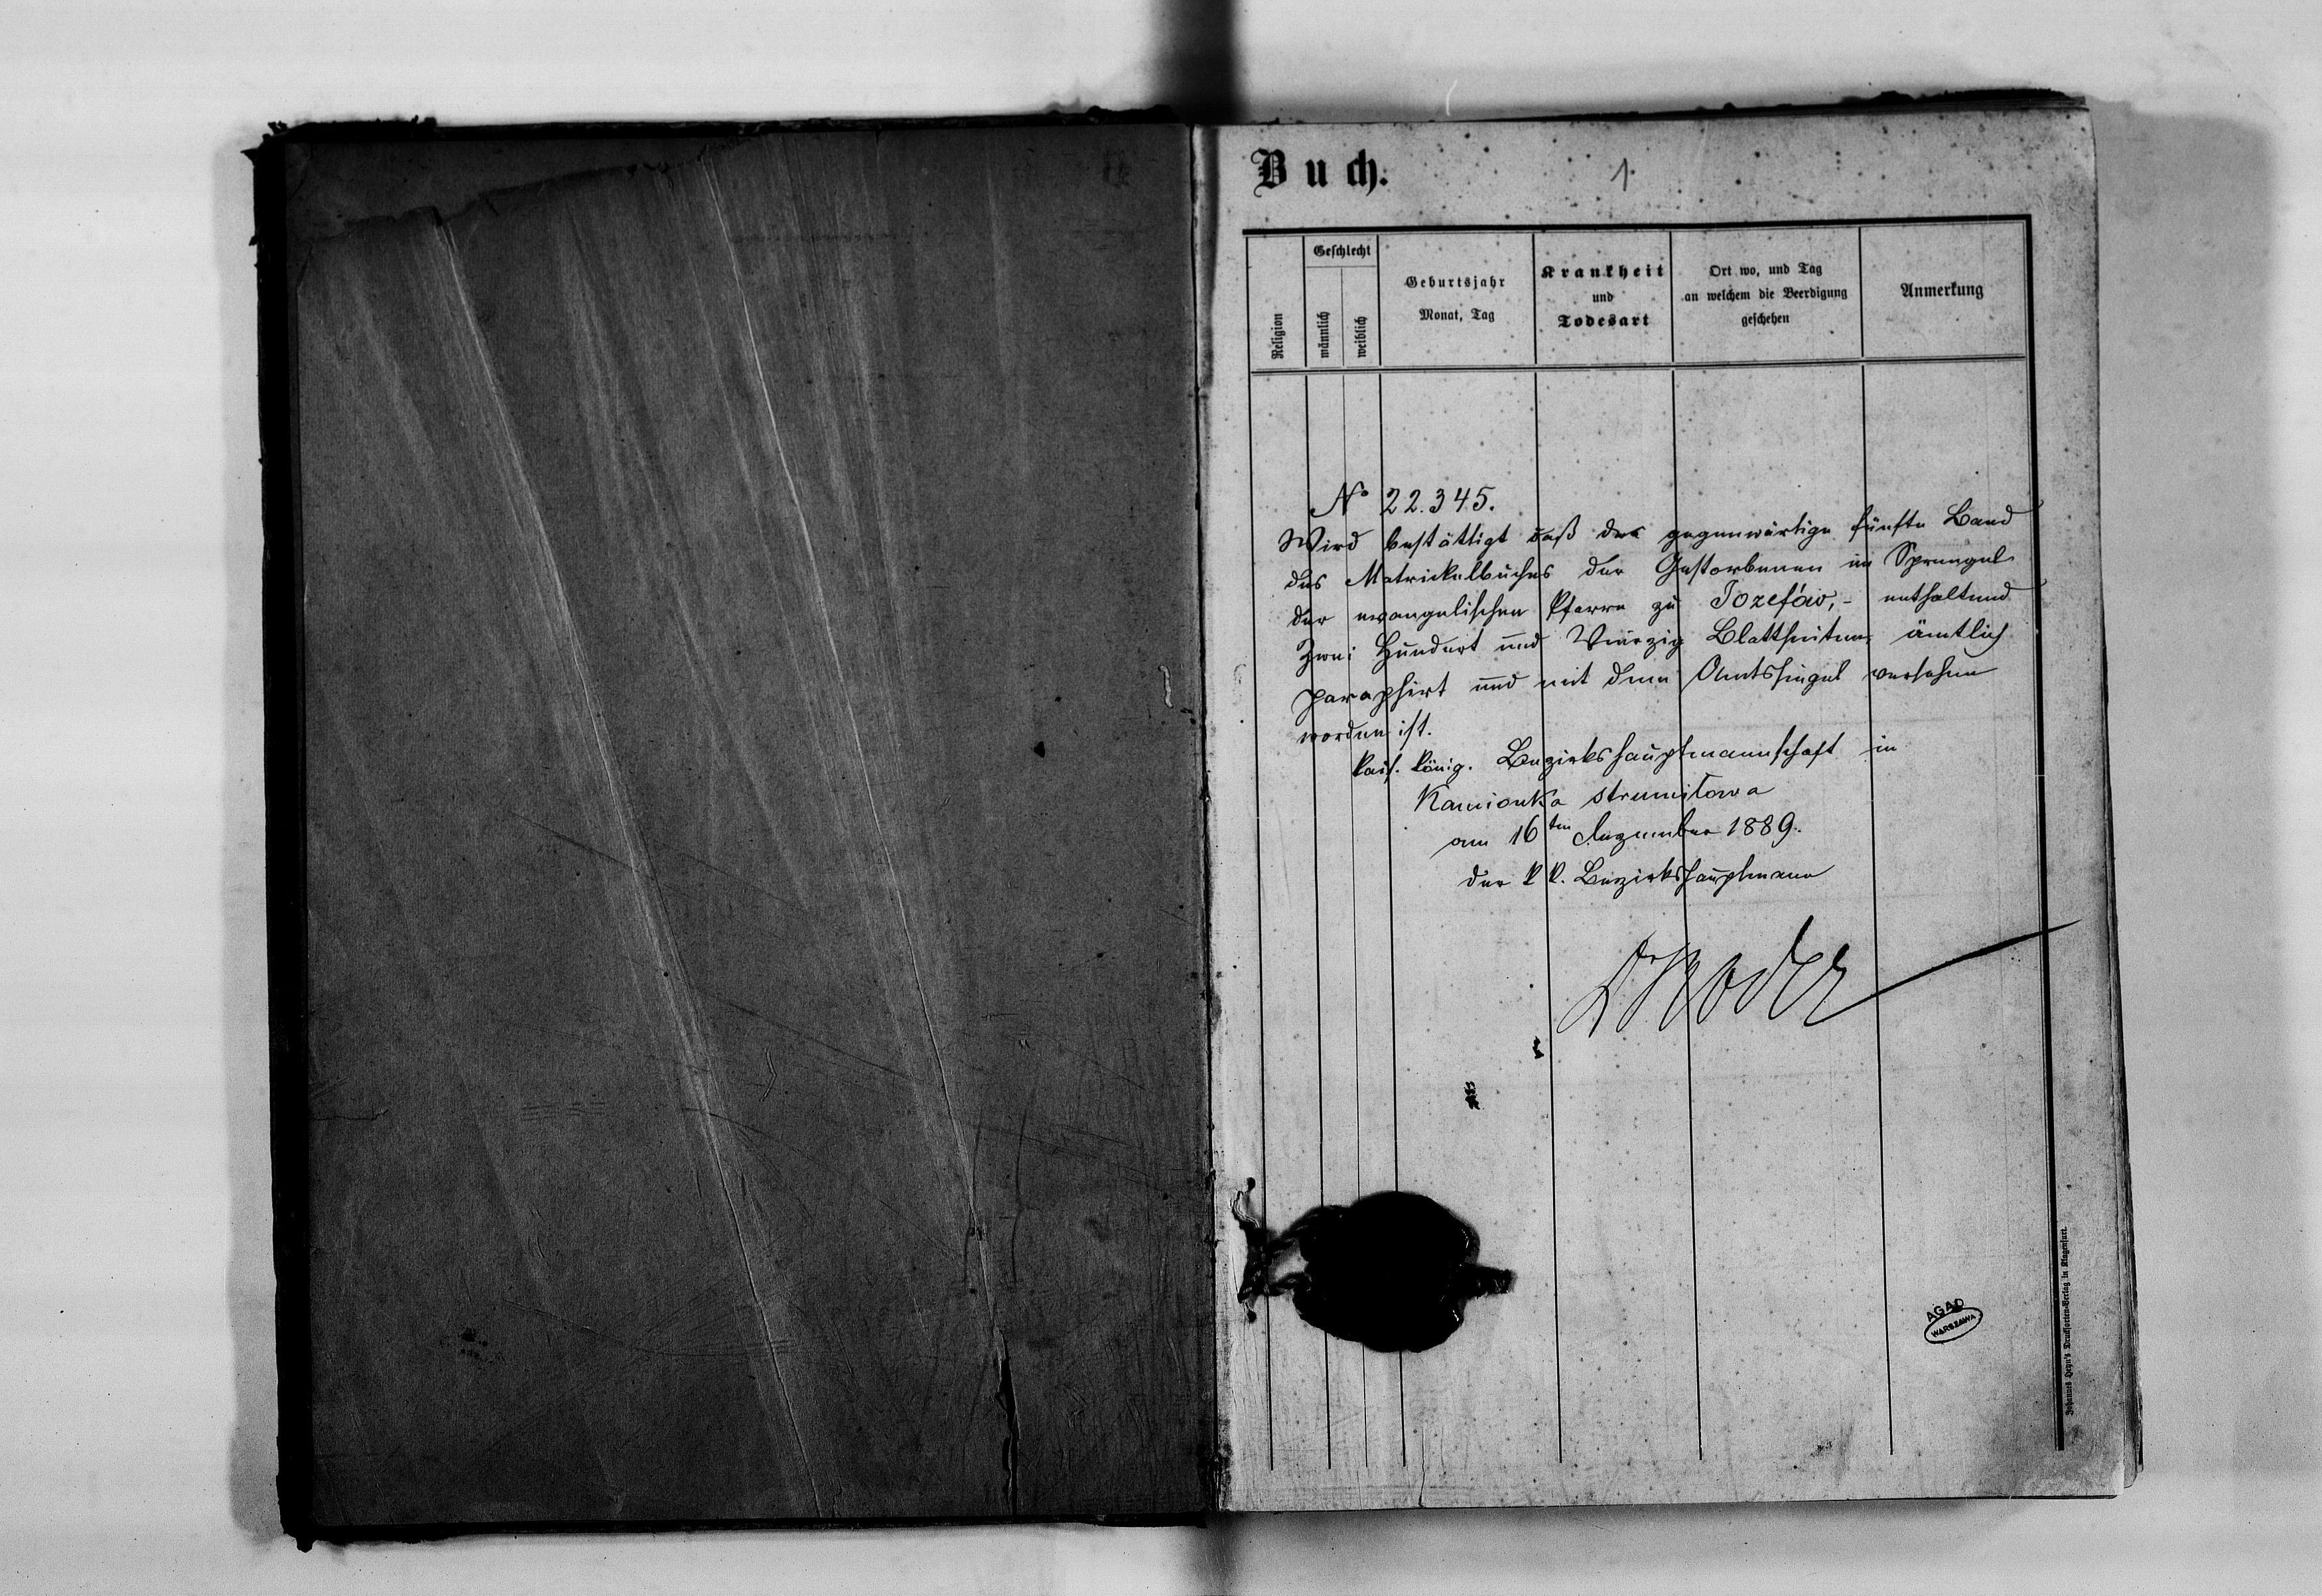 Buch.
1
Religion
Geschlecht
männlich
weiblich
Geburtsjahr
Monat, Tag
Krankheit
und
Todesart
Ort wo, und Tag
an welchem die Beerdigung
geschehen
Anmerkung
No 22.345.
Wird bestättigt daß der gegenwärtige fünfte Band
des Matrickelbuches der Gestorbenen im Sprengel
der evangelischen Pfarre zu Józefów, - enthaltend
Zwei Hundert und Vierzig Blattseiten, ämtlich
paraphirt und mit dem Amtssiegel versehen
worden ist.
kais. könig. Bezirkshauptmannschaft in
Kamionka strumiłowa
am 16ten Dezember 1889.
der k k. Bezirkshauptmann
AGAD
WARSZAWA
Johannes Heyn's Drucksorten-Verlag in Klagenfurt.